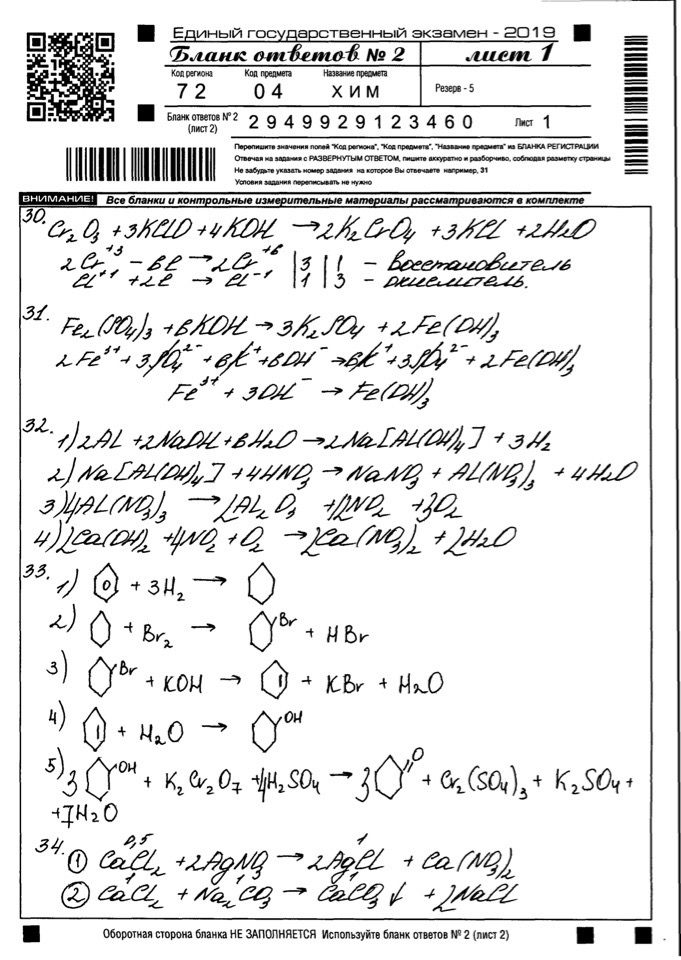 Единый государственный экзамен - 2019
Бланк ответов № 2 лист 1
Код региона Код предмета Название предмета
72 04 ХИМ Резерв - 5
Бланк ответов № 2 (лист 2) 2949929123460 Лист 1
Перепишите значения полей "Код региона", "Код предмета", "Название предмета" из БЛАНКА РЕГИСТРАЦИИ
Отвечая на задания с РАЗВЕРНУТЫМ ОТВЕТОМ, пишите аккуратно и разборчиво, соблюдая разметку страницы
Не забудьте указать номер задания на которое Вы отвечаете например, 31
Условия задания переписывать не нужно
ВНИМАНИЕ! Все бланки и контрольные измерительные материалы рассматриваются в комплекте
30. Cr₂O₃ + 3KClO + 4KOH → 2K₂CrO₄ + 3KCl + 2H₂O
2Cr⁺³ - 6e → 2Cr⁺⁶ | 3 | 1 - восстановитель
Cl⁺¹ + 2e → Cl⁻¹ | 1 | 3 - окислитель.
31. Fe₂(SO₄)₃ + 6KOH → 3K₂SO₄ + 2Fe(OH)₃
2Fe³⁺ + 3SO₄²⁻ + 6K⁺ + 6OH⁻ → 6K⁺ + 3SO₄²⁻ + 2Fe(OH)₃
Fe³⁺ + 3OH⁻ → Fe(OH)₃
32. 1) 2Al + 2NaOH + 6H₂O → 2Na[Al(OH)₄] + 3H₂
2) Na[Al(OH)₄] + 4HNO₃ → NaNO₃ + Al(NO₃)₃ + 4H₂O
3) 4Al(NO₃)₃ → 2Al₂O₃ + 12NO₂ + 3O₂
4) 2Ca(OH)₂ + 4NO₂ + O₂ → 2Ca(NO₃)₂ + 2H₂O
33. 1) + 3H₂ →
2) + Br₂ → Br + HBr
3) Br + KOH → + KBr + H₂O
4) + H₂O → OH
5) 3 OH + K₂Cr₂O₇ + 4H₂SO₄ → 3 O + Cr₂(SO₄)₃ + K₂SO₄ +
+ 7H₂O
0,5 1
34. ① CaCl₂ + 2AgNO₃ → 2AgCl + Ca(NO₃)₂
1 1 1
② CaCl₂ + Na₂CO₃ → CaCO₃↓ + 2NaCl
Оборотная сторона бланка НЕ ЗАПОЛНЯЕТСЯ Используйте бланк ответов № 2 (лист 2)